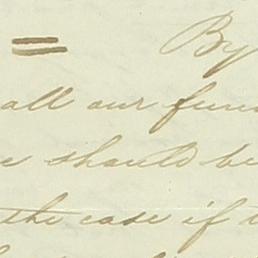 = By
all our fun
should be
the case if t